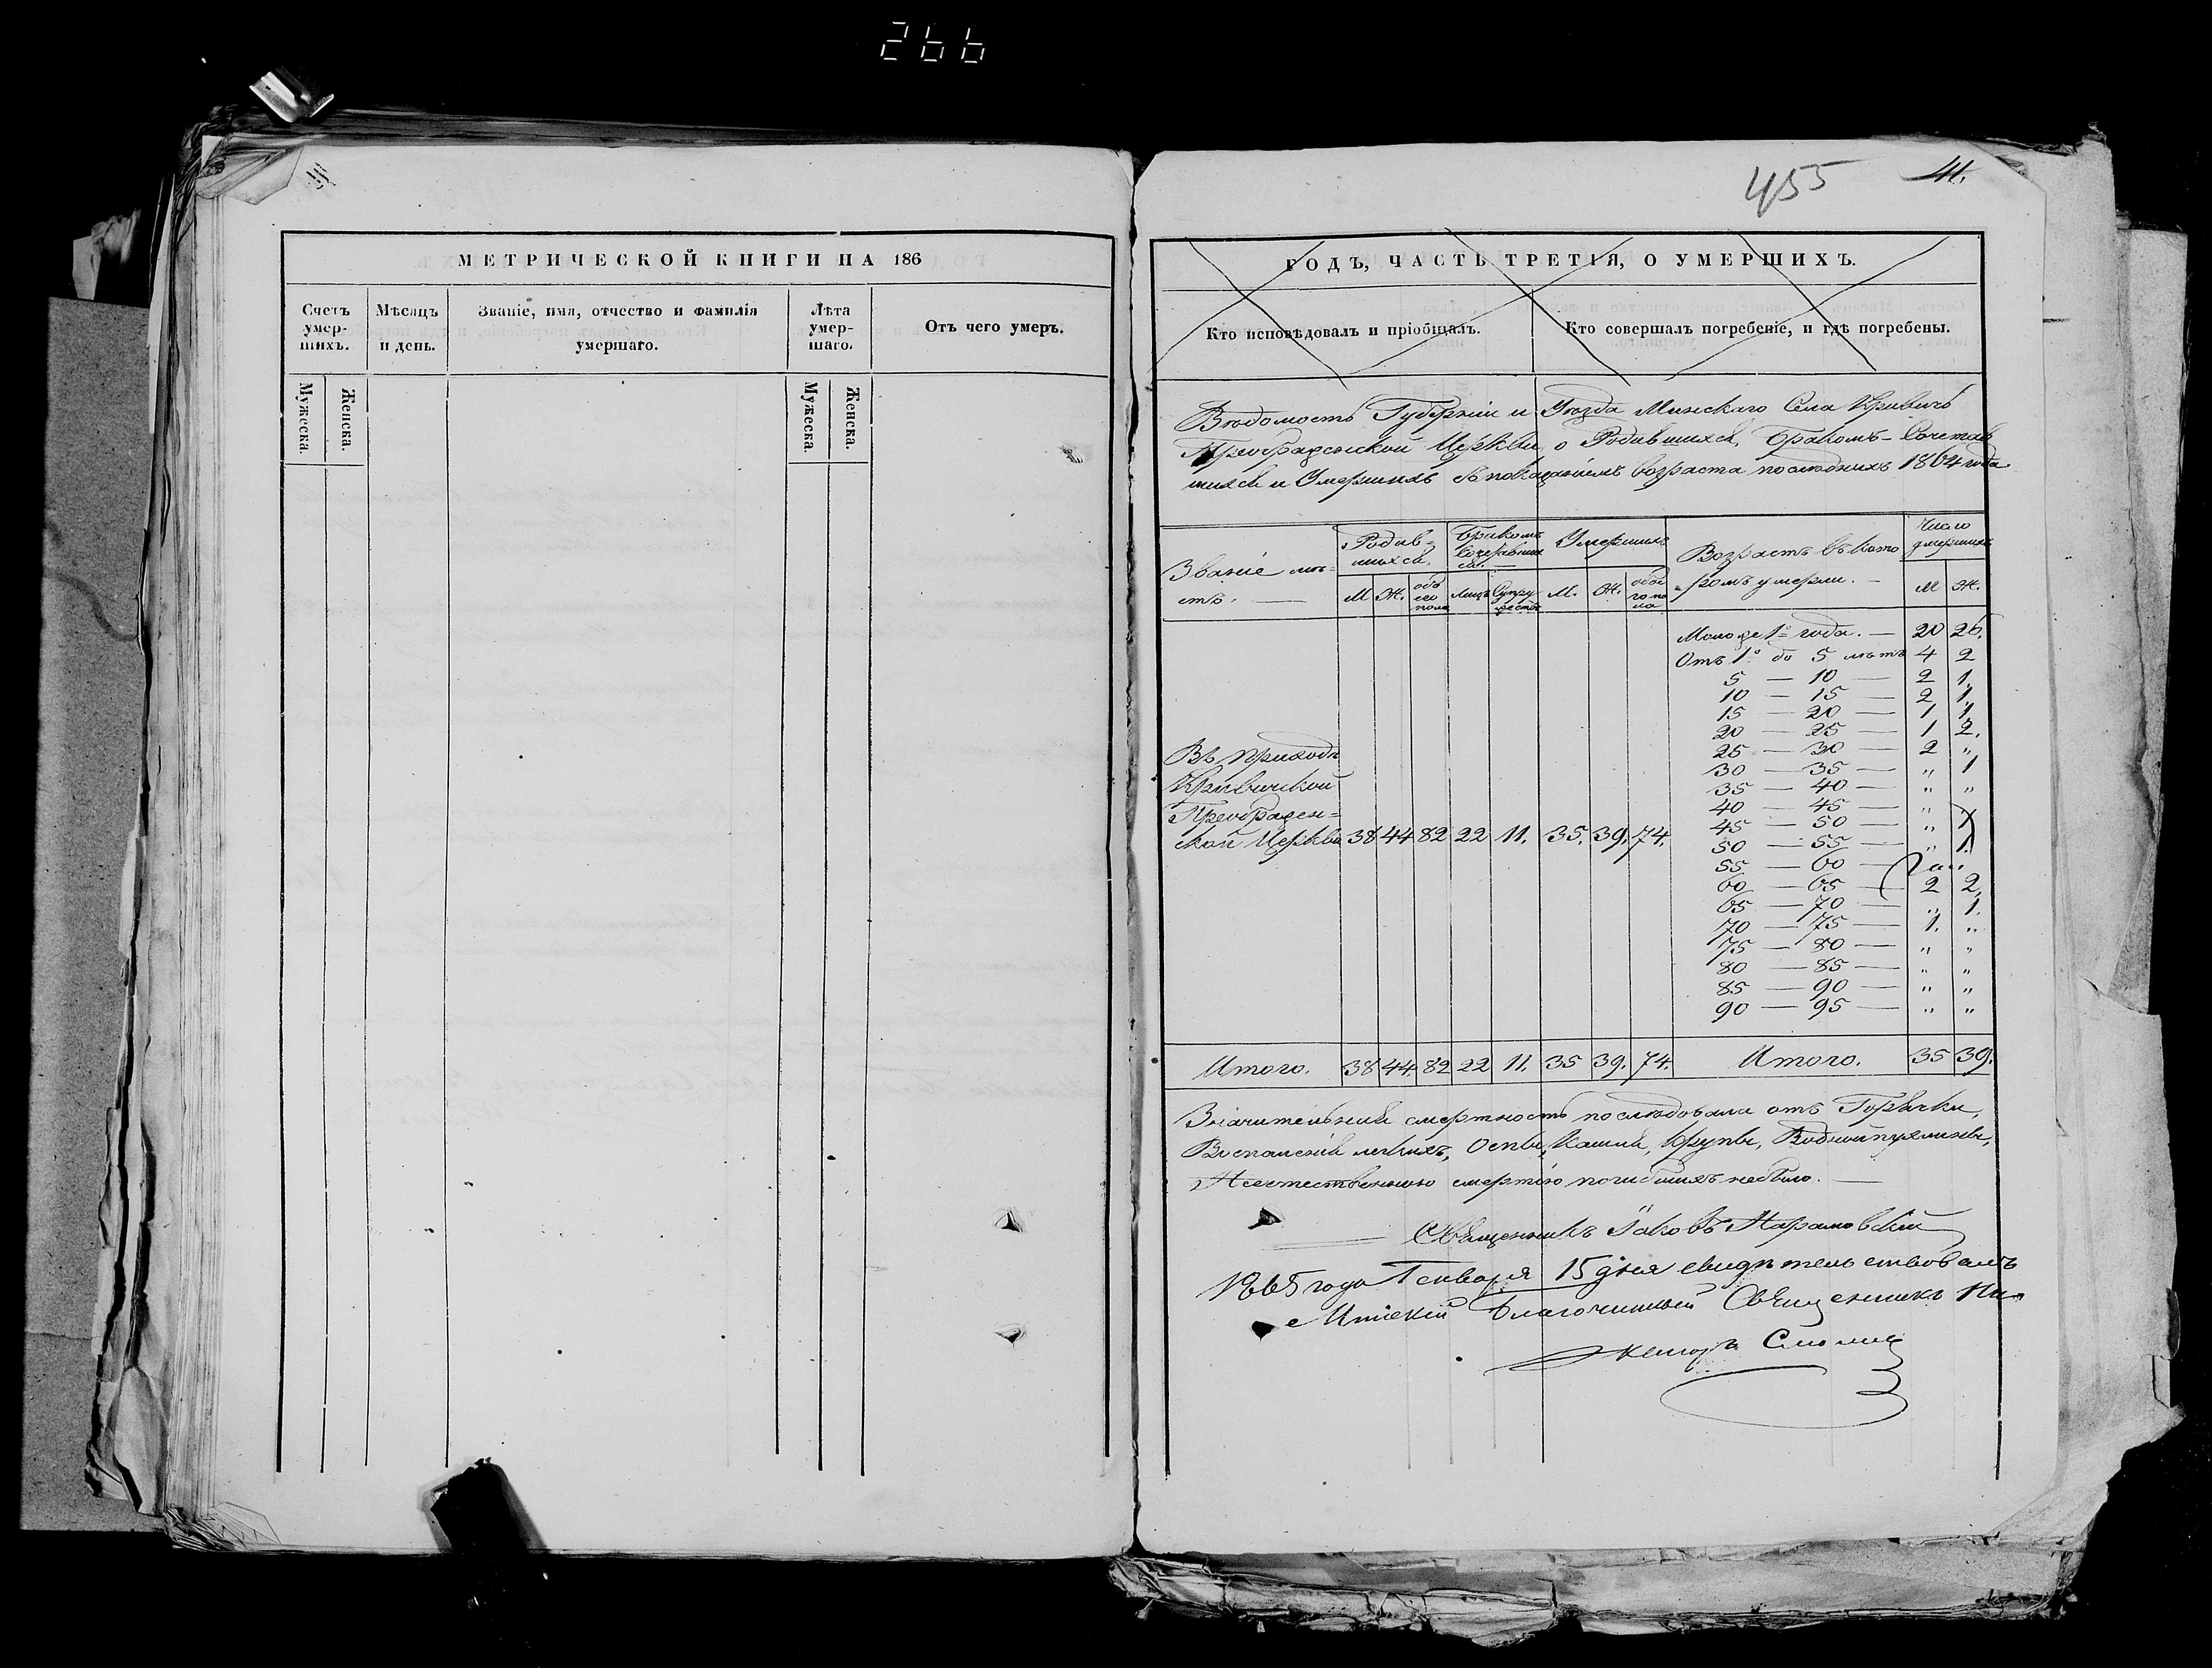 266
МЕТРИЧЕСКОЙ КНИГИ НА 186
Счетъ умер- шихъ. Мѣсяцъ и день. Званіе, имя, отчество и фамилія умершаго. Лѣта умер- шаго. Отъ чего умеръ.
Мужеска. Женска. Мужеска. Женска.
455 41.
ГОДЪ, ЧАСТЬ ТРЕТІЯ, О УМЕРШИХЪ.
Кто исповѣдовалъ и пріобщалъ. Кто совершалъ погребеніе, и гдѣ погребены.
Вѣдомость Губерніи и Уѣзда Минскаго Села Кривичъ
Преображенской Церкви, о Родившихся, Бракомъ-Сочетав
шихся и Умершихъ съ показаніемъ возраста послѣднихъ 1864 года
Званіе мѣ=
стъ. Родив=
шихся. Бракомъ
Сочетавших
ся. Умершихъ Возрастъ въ кото
=ромъ умерли. Число
умершихъ
М Ж. обо
его
пола Лицъ Супру
жествъ М. Ж. обое
го по
ла М Ж.
Моложе 1º года. — 20 26.
Отъ 1º до 5 лѣтъ 4 2
5 — 10 — 2 1.
10 — 15 — 2 1.
15 — 20 — 1 1.
20 — 25 — 1 2.
25 — 30 — 2 „
30 — 35 — „ 1
35 — 40 — „ „
40 — 45 — „
45 — 50 — „ 1
50 — 55 — „ 1.
55 — 60 —
60 — 65 — 2 2.
65 — 70 — „ 1.
70 — 75 — 1. „
75 — 80 — „ „
80 — 85 — „ „
85 — 90 — „ „
90 — 95 — „ „
Въ приходѣ
Кривичской
Преображен=
ской Церкви 38 44 82 22 11. 35. 39. 74.
Итого. 38 44. 82 22 11. 35 39. 74. Итого. 35 39.
Значительная смертность послѣдовала отъ Горячки,
Воспаленія легкихъ, Оспы, Кашля, Крупы, Водной пухлины,
Неестественною смертію погибшихъ небыло. —
Священникъ Іаковъ Нарановскій
1865 года Генваря 15 дня свидѣтельствовалъ
Минскій Благочинный Священникъ Ни-
каноръ Смоличъ